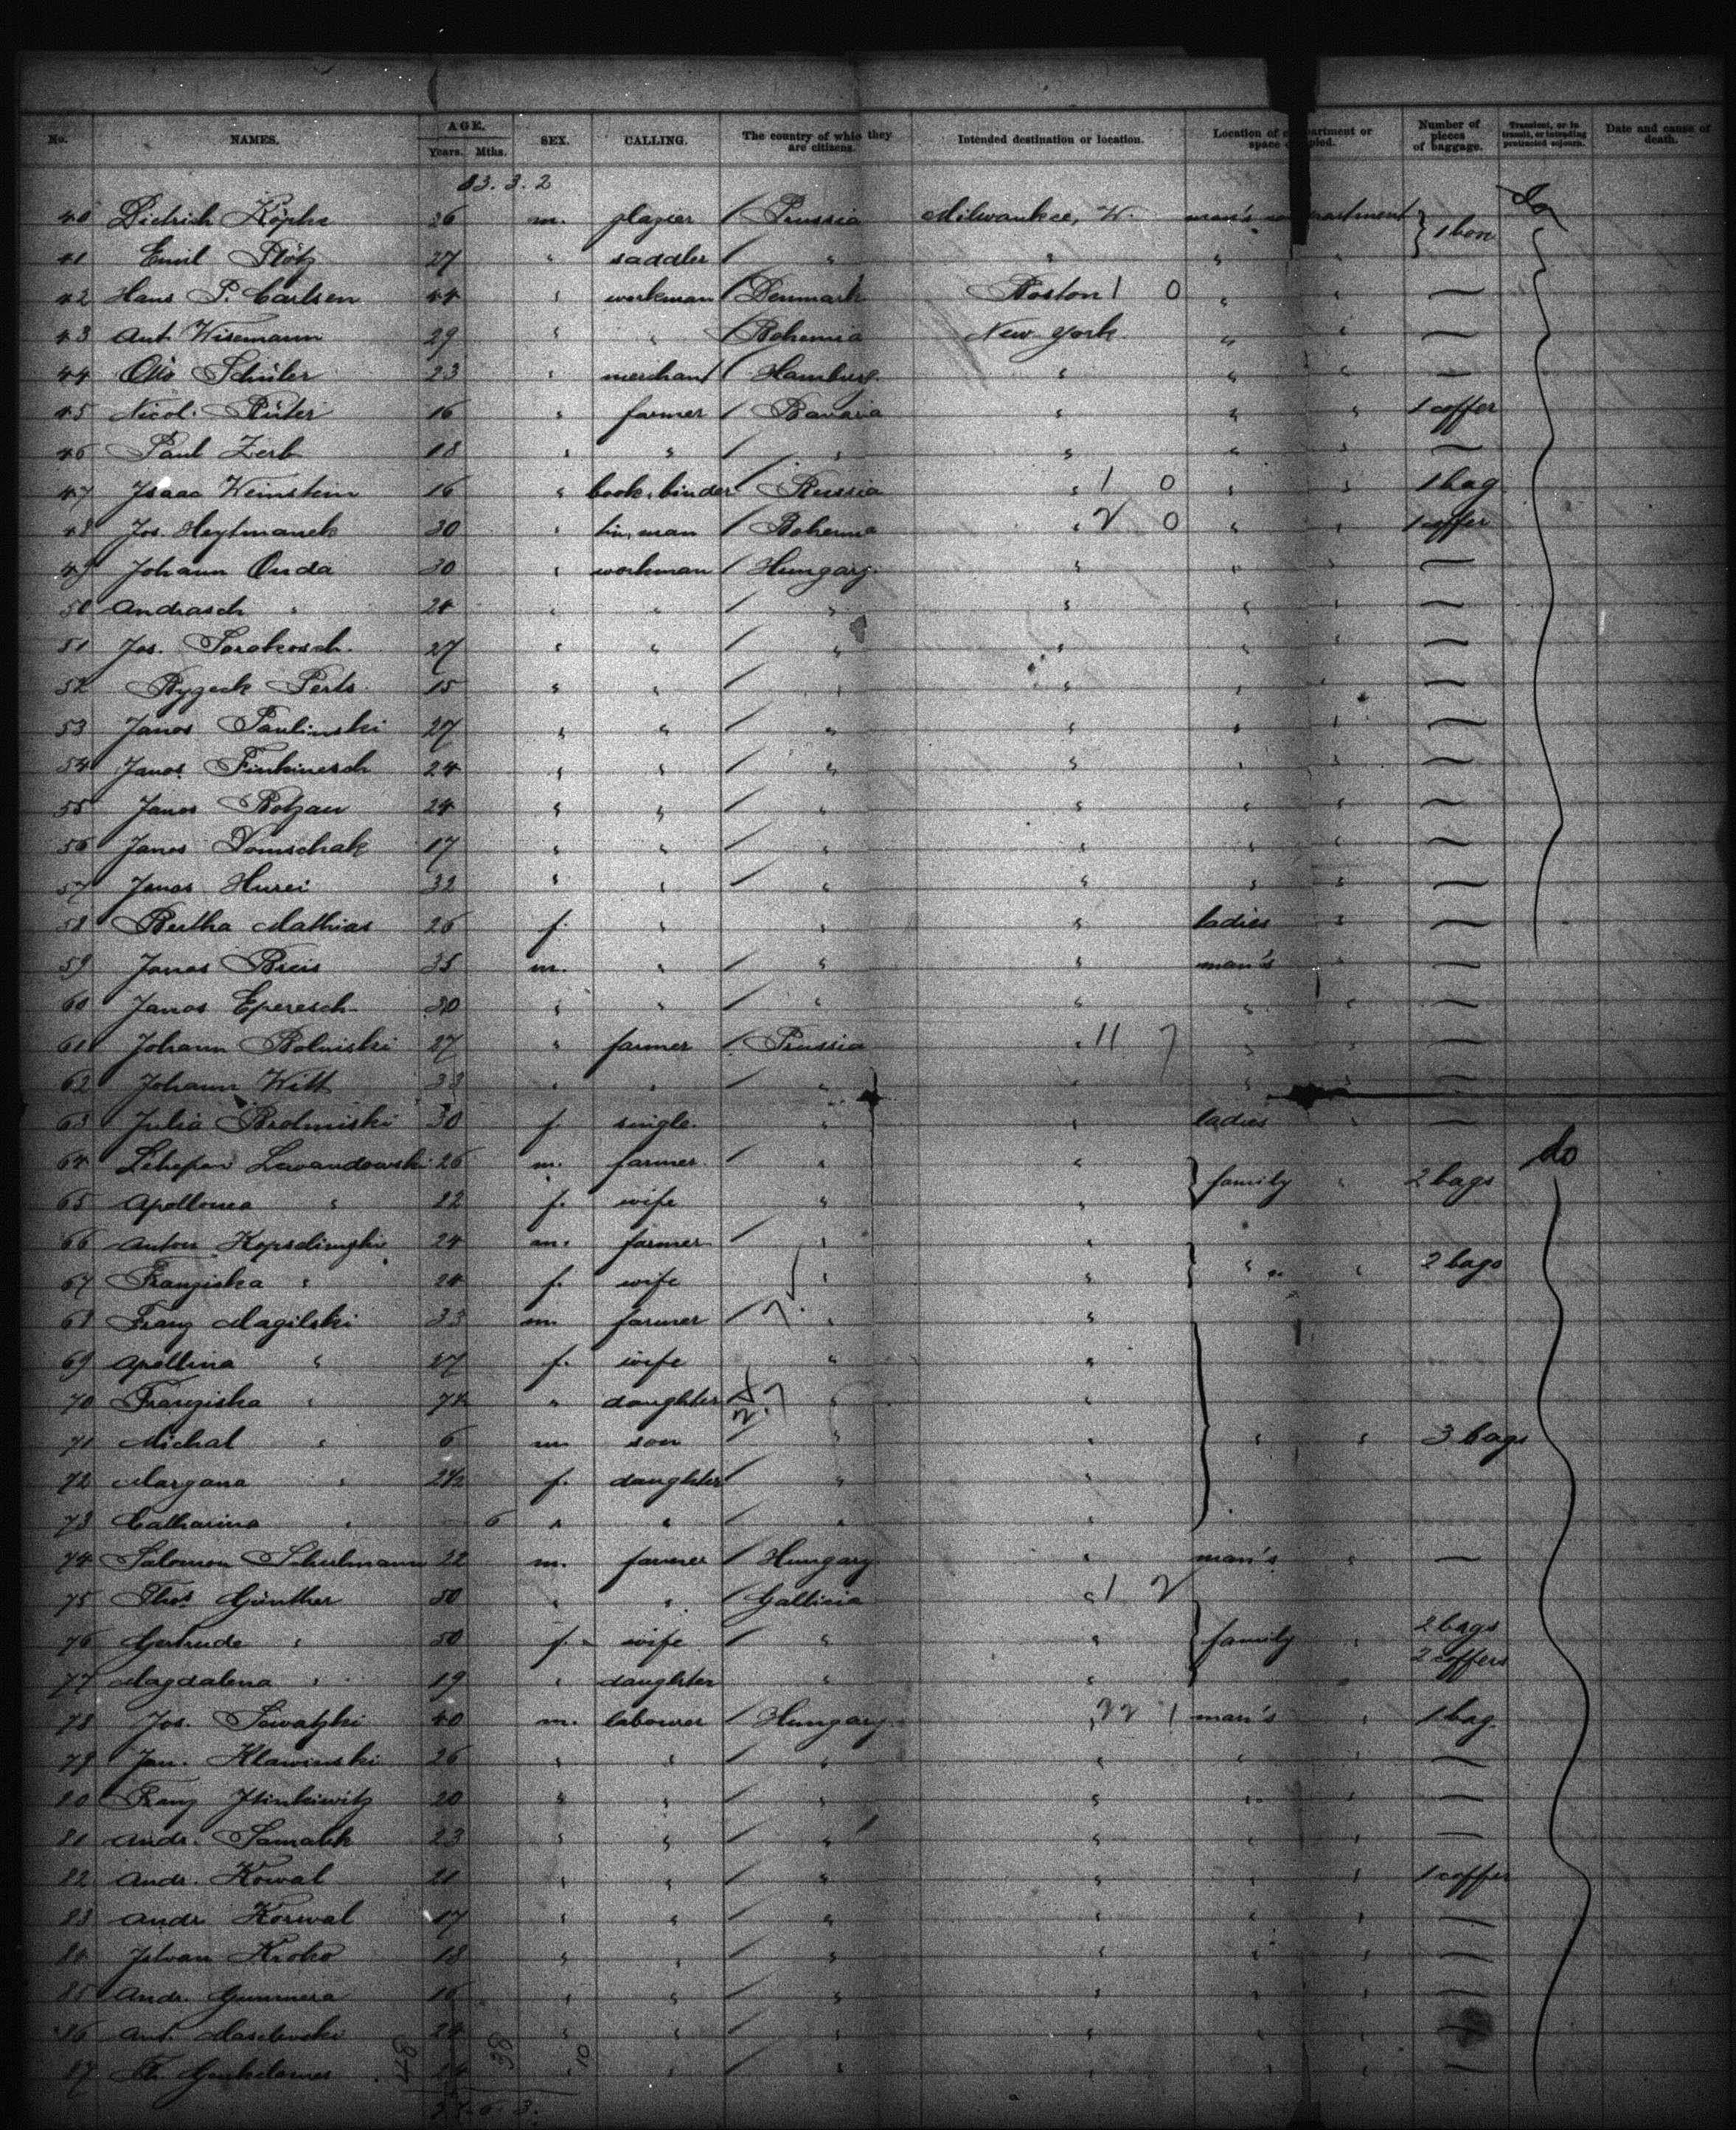 No. NAMES. AGE. Years. Mths. SEX. CALLING. The country of which they are citizens. Intended destination or location. Location of compartment or space occupied. Number of pieces of baggage. Transient, or in transit, or intending protracted sojourn. Date and cause of death.
83. 3. 2
40 Dietrich Köpke 26 m. glazier / Prussia Milwaukee, W. man's compartment } 1 box do
41 Emil Plötz 27 " saddler / " " " "
42 Hans P. Carlsen 44 " workman / Denmark Boston 1 0 " " —
43 Ant. Wisemann 29 " " / Bohemia New York " " —
44 Otto Schüler 23 " merchant / Hamburg " " " —
45 Nicol. Rüter 16 " farmer / Bavaria " " " 1 coffer
46 Paul Zerb 18 " " / " " " " —
47 Isaac Weinstein 16 " book binder / Russia " 1 0 " " 1 bag
48 Jos. Heytmanek 30 " tin, man / Bohemia " 2 0 " " 1 coffer
49 Johann Onda 30 " workman / Hungary " " " —
50 Andrasch " 24 " " / " " " " —
51 Jos. Sorokosch 27 " " / " " " " —
52 Perls 15 " " / " " " " —
53 Janos Paulinski 27 " " / " " " " —
54 Janos Finkinesch 24 " " / " " " " —
55 Janos Botzau 24 " " / " " " " —
56 Janos Vomschak 17 " " / " " " " —
57 Janos Hurei 32 " " / " " " " —
58 Bertha Mathias 26 f. " " " ladies " —
59 Janos Breis 35 m. " / " " man's " —
60 Janos Eperesch 30 " " / " " " " —
61 Johann Bolniski 27 " farmer / Prussia " 11 7 " " —
62 Johann Witt 33 " " / " " " " —
63 Julia Brolmiski 30 f. single " " ladies " —
64 Lewandowski 26 m. farmer / " " } family " 2 bags do
65 Apollonia " 22 f. wife " "
66 Anton Kopsdimski 24 m. farmer / " " } " " 2 bags
67 Franziska " 24 f. wife " "
68 Franz Magilski 33 m farmer / " "
69 Apollina " 27 f. wife " "
70 Franziska " 7½ " daughter " "
71 Michal " 6 m son / " " " " 3 bags
72 Margana " 2½ f. daughter / " "
73 Catharina " — 6 " " / " "
74 Salomon Schulmann 22 m. farmer / Hungary " man's " —
75 Thos. Günther 50 " " / Gallicia " 1 2
76 Gertrude " 50 f. wife / " " } family " 2 bags 2 coffers
77 Magdalena " 19 " daughter " "
78 Jos. Sawatzki 40 m. labourer / Hungary " 22 1 man's " 1 bag
79 Jan. Klawinski 26 " " / " " " " —
80 Franz Itinkiewitz 20 " " / " " " " —
81 Andr. Samalik 23 " " / " " " " —
82 Andr. Kowal 21 " " / " " " " 1 coffer
83 Andr Korwal 17 " " / " " " " —
84 Istvan Kroko 18 " " / " " " " —
85 Andr. Gummera 16 " " / " " " " —
86 Ant. Maselewski 24 " " / " " " " —
87 " " / " " " " —
38 10